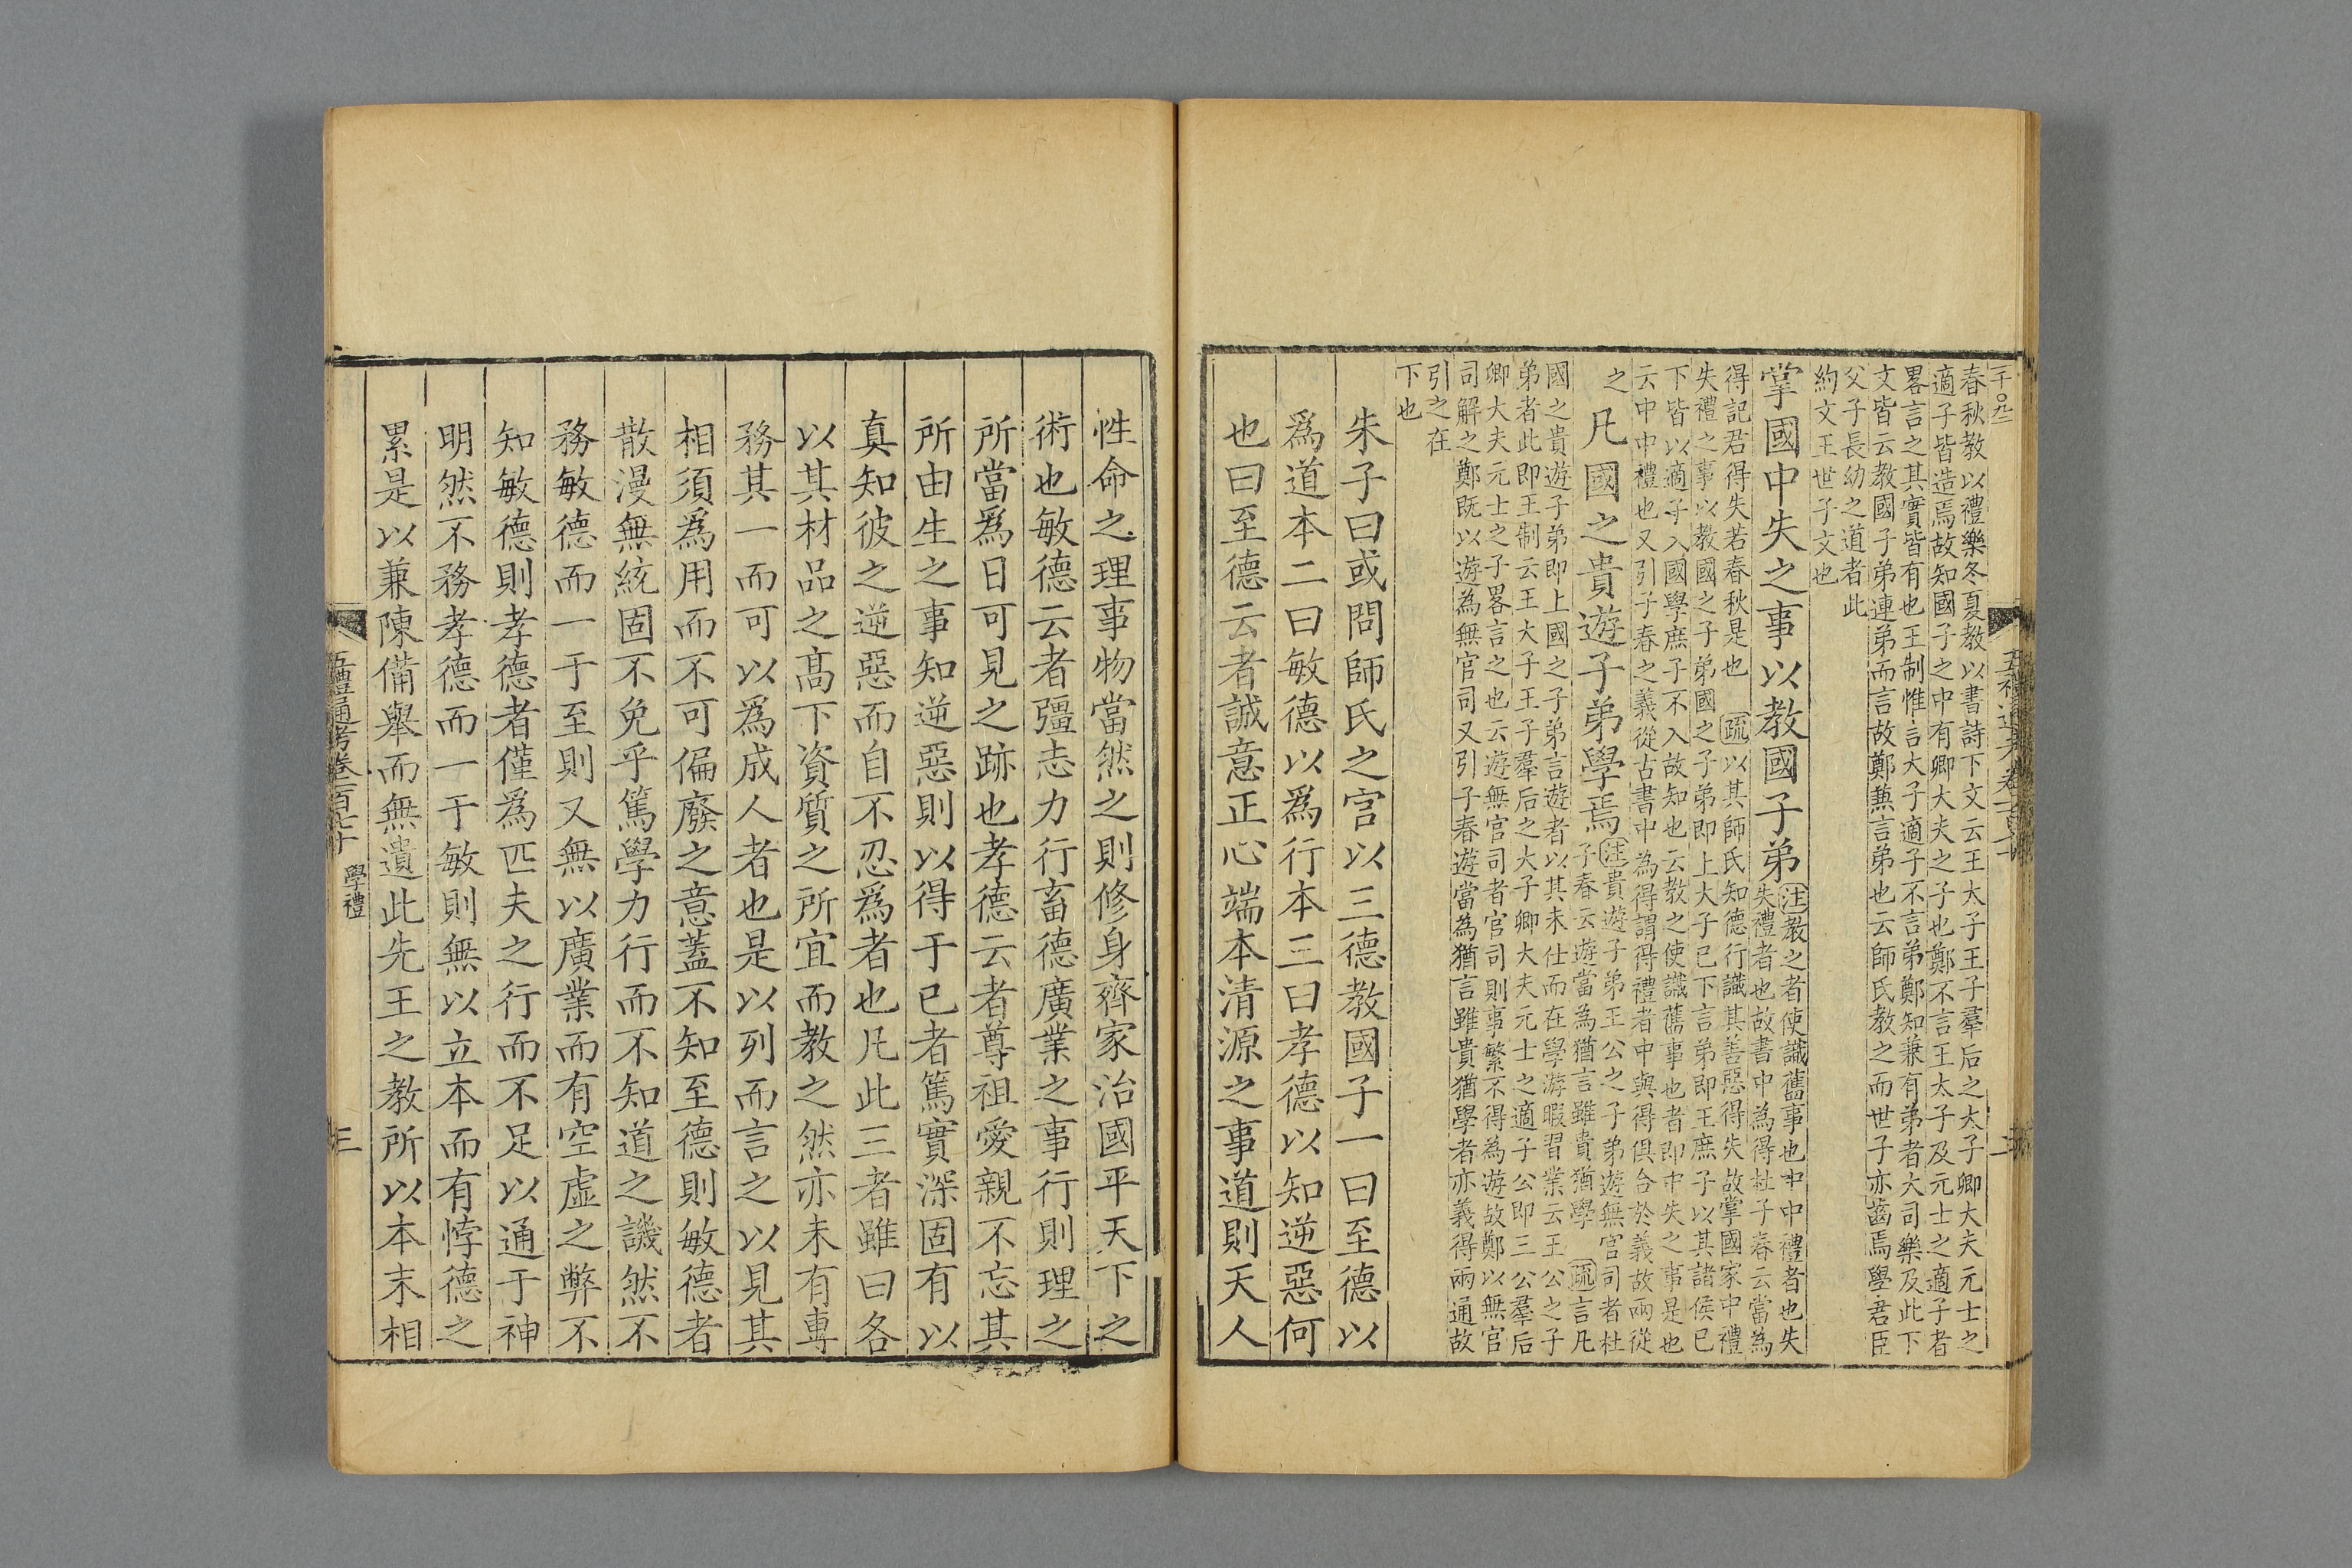 春秋教以禮樂冬夏教以書詩下文云王太子王子羣后之大子卿大夫元士之
適子皆造焉故知國子之中有卿大夫之子也鄭不言王太子及元士之適子者
畧言之其實皆有也王制惟言大子適子不言弟鄭知兼有弟者大司樂及此下
文皆云教國子弟連弟而言故鄭蕪言弟也云師氏教之而世子亦齒焉學君臣
父子長幼之道者此
約文王世子文也
掌國中失之事以教國子弟
注教之者使識舊事也中中禮者也失
失禮者也故書中為得杜子春云當為
得記君得失若春秋是也 疏以其師氏知德行識其善惡得失故掌國家中禮
失禮之事以教國之子弟國之子弟即上大子已下言弟即王庶子以其諸侯已
下皆以適子入國學庶子不入故知也云教之使識舊事也者即中失之事是也
云中中禮也又引子春之義從古書中為得謂得禮者中與得俱合於義故兩從
之
凡國之貴遊子弟學焉
注貴遊子弟王公之子弟遊無官司者杜
子春云遊當為猶言雖貴猶學 疏言凡
國之貴遊子弟即上國之子弟言遊者以其未仕而在學游暇習業云王公之子
弟者此即王制云王大子王子羣后之大子卿大夫元士之適子公即三公羣后
卿大夫元士之子畧言之也云遊無官司者官司則事繁不得為遊故鄭以無官
司解之鄭既以遊為無官司又引子春遊當為猶言雖貴猶學者亦義得兩通故
引之在
下也
朱子曰或問師氏之官以三德教國子一曰至德以
爲道本二曰敏德以爲行本三曰孝德以知逆惡何
也曰至德云者誠意正心端本清源之事道則天人
性命之理事物當然之則修身齊家治國平天下之
術也敏德云者彊志力行畜德廣業之事行則理之
所當爲日可見之跡也孝德云者尊祖愛親不忘其
所由生之事知逆惡則以得于已者篤實深固有以
真知彼之逆惡而自不忍爲者也凡此三者雖曰各
以其材品之高下資質之所宜而教之然亦未有專
務其一而可以爲成人者也是以列而言之以見其
相須爲用而不可偏廢之意蓋不知至德則敏德者
散漫無統固不免乎篤學力行而不知道之譏然不
務敏德而一于至則又無以廣業而有空虛之弊不
知敏德則孝德者僅爲匹夫之行而不足以通于神
明然不務孝德而一于敏則無以立本而有悖德之
累是以兼陳備舉而無遺此先王之教所以本末相
五禮通考卷一百七十 學禮 三